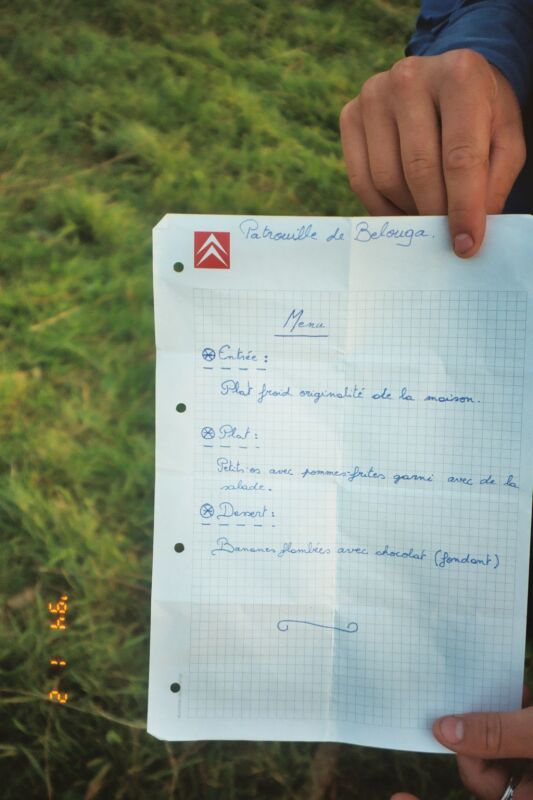 Patrouille de Belouga.
Menu
Entrée :
Plat froid originalité de la maison.
Plat :
Petits os avec pommes-frites garni avec de la
salade.
Dessert :
Bananes flambées avec chocolat (fondant)
'94 1 2